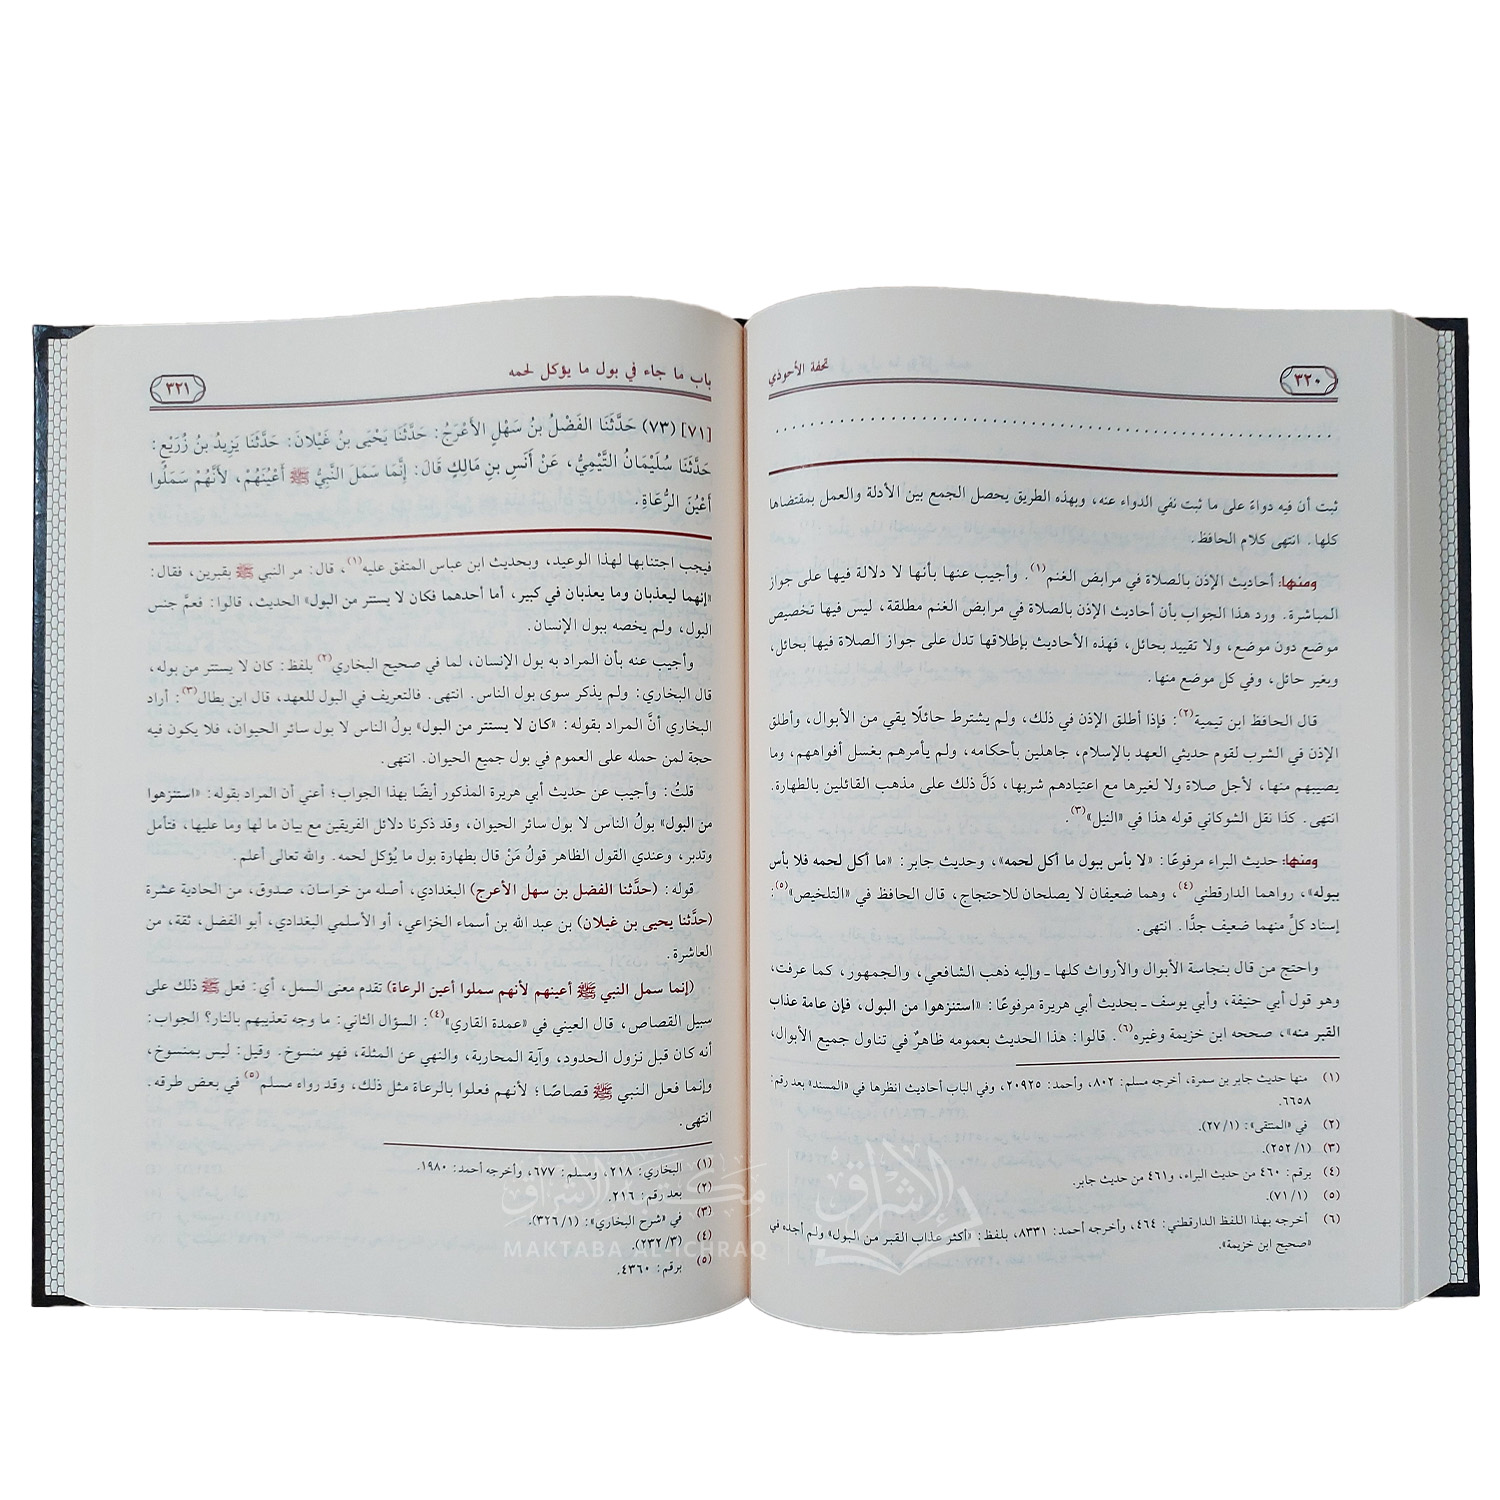 ٣٢٠
تحفة الأحوذي
ثبت أن فيه دواءً على ما ثبت نفي الدواء عنه، وبهذه الطريق يحصل الجمع بين الأدلة والعمل بمقتضاها
كلها. انتهى كلام الحافظ.
ومنها: أحاديث الإذن بالصلاة في مرابض الغنم(١). وأجيب عنها بأنها لا دلالة فيها على جواز
المباشرة. ورد هذا الجواب بأن أحاديث الإذن بالصلاة في مرابض الغنم مطلقة، ليس فيها تخصيص
موضع دون موضع، ولا تقييد بحائل، فهذه الأحاديث بإطلاقها تدل على جواز الصلاة فيها بحائل،
وبغير حائل، وفي كل موضع منها.
قال الحافظ ابن تيمية(٢): فإذا أطلق الإذن في ذلك، ولم يشترط حائلًا يقي من الأبوال، وأطلق
الإذن في الشرب لقوم حديثي العهد بالإسلام، جاهلين بأحكامه، ولم يأمرهم بغسل أفواههم، وما
يصيبهم منها، لأجل صلاة ولا لغيرها مع اعتيادهم شربها، دَلَّ ذلك على مذهب القائلين بالطهارة.
انتهى. كذا نقل الشوكاني قوله هذا في «النيل»(٣).
ومنها: حديث البراء مرفوعًا: «لا بأس ببول ما أكل لحمه»، وحديث جابر: «ما أكل لحمه فلا بأس
ببوله»، رواهما الدارقطني(٤)، وهما ضعيفان لا يصلحان للاحتجاج، قال الحافظ في «التلخيص»(٥):
إسناد كلٍّ منهما ضعيف جدًّا. انتهى.
واحتج من قال بنجاسة الأبوال والأرواث كلها ـ وإليه ذهب الشافعي، والجمهور، كما عرفت،
وهو قول أبي حنيفة، وأبي يوسف ـ بحديث أبي هريرة مرفوعًا: «استنزهوا من البول، فإن عامة عذاب
القبر منه»، صححه ابن خزيمة وغيره(٦). قالوا: هذا الحديث بعمومه ظاهرٌ في تناول جميع الأبوال،
(١) منها حديث جابر بن سمرة، أخرجه مسلم: ٨٠٢، وأحمد: ٢٠٩٢٥، وفي الباب أحاديث انظرها في «المسند» بعد رقم:
٦٦٥٨.
(٢) في «المنتقى»: (٢٧/١).
(٣) (٢٥٢/١).
(٤) برقم: ٤٦٠ من حديث البراء، و٤٦١ من حديث جابر.
(٥) (٧١/١).
(٦) أخرجه بهذا اللفظ الدارقطني: ٤٦٤، وأخرجه أحمد: ٨٣٣١، بلفظ: «أكثر عذاب القبر من البول» ولم أجده في
«صحيح ابن خزيمة».
باب ما جاء في بول ما يؤكل لحمه
٣٢١
[٧١] (٧٣) حَدَّثَنَا الفَضْلُ بنُ سَهْلٍ الأَعْرَجُ: حَدَّثَنَا يَحْيَى بنُ غَيْلانَ: حَدَّثَنَا يَزِيدُ بنُ زُرَيْعٍ:
حَدَّثَنَا سُلَيْمَانُ التَّيْمِيُّ، عَنْ أَنَسِ بنِ مَالِكٍ قَالَ: إِنَّمَا سَمَلَ النَّبِيُّ ﷺ أَعْيُنَهُمْ، لأَنَّهُمْ سَمَلُوا
أَعْيُنَ الرُّعَاةِ.
فيجب اجتنابها لهذا الوعيد، وبحديث ابن عباس المتفق عليه(١)، قال: مر النبي ﷺ بقبرين، فقال:
«إنهما ليعذبان وما يعذبان في كبير، أما أحدهما فكان لا يستتر من البول» الحديث، قالوا: فعمَّ جنس
البول، ولم يخصه ببول الإنسان.
وأجيب عنه بأن المراد به بول الإنسان، لما في صحيح البخاري(٢) بلفظ: كان لا يستتر من بوله،
قال البخاري: ولم يذكر سوى بول الناس. انتهى. فالتعريف في البول للعهد، قال ابن بطال(٣): أراد
البخاري أنَّ المراد بقوله: «كان لا يستتر من البول» بولُ الناس لا بول سائر الحيوان، فلا يكون فيه
حجة لمن حمله على العموم في بول جميع الحيوان. انتهى.
قلتُ: وأجيب عن حديث أبي هريرة المذكور أيضًا بهذا الجواب؛ أعني أن المراد بقوله: «استنزهوا
من البول» بولُ الناس لا بول سائر الحيوان، وقد ذكرنا دلائل الفريقين مع بيان ما لها وما عليها، فتأمل
وتدبر، وعندي القول الظاهر قولُ مَنْ قال بطهارة بول ما يُؤكل لحمه. والله تعالى أعلم.
قوله: (حدَّثنا الفضل بن سهل الأعرج) البغدادي، أصله من خراسان، صدوق، من الحادية عشرة
(حدَّثنا يحيى بن غيلان) بن عبد الله بن أسماء الخزاعي، أو الأسلمي البغدادي، أبو الفضل، ثقة، من
العاشرة.
(إنما سمل النبي ﷺ أعينهم لأنهم سملوا أعين الرعاة) تقدم معنى السمل، أي: فعل ﷺ ذلك على
سبيل القصاص، قال العيني في «عمدة القاري»(٤): السؤال الثاني: ما وجه تعذيبهم بالنار؟ الجواب:
أنه كان قبل نزول الحدود، وآية المحاربة، والنهي عن المثلة، فهو منسوخ. وقيل: ليس بمنسوخ،
وإنما فعل النبي ﷺ قصاصًا؛ لأنهم فعلوا بالرعاة مثل ذلك، وقد رواه مسلم(٥) في بعض طرقه.
انتهى.
(١) البخاري: ٢١٨، ومسلم: ٦٧٧، وأخرجه أحمد: ١٩٨٠.
(٢) بعد رقم: ٢١٦.
(٣) في «شرح البخاري»: (٣٢٦/١).
(٤) (٢٣٢/٣).
(٥) برقم: ٤٣٦٠.
مكتبة الإشراق
MAKTABA AL-ICHRAQ
الإشراق